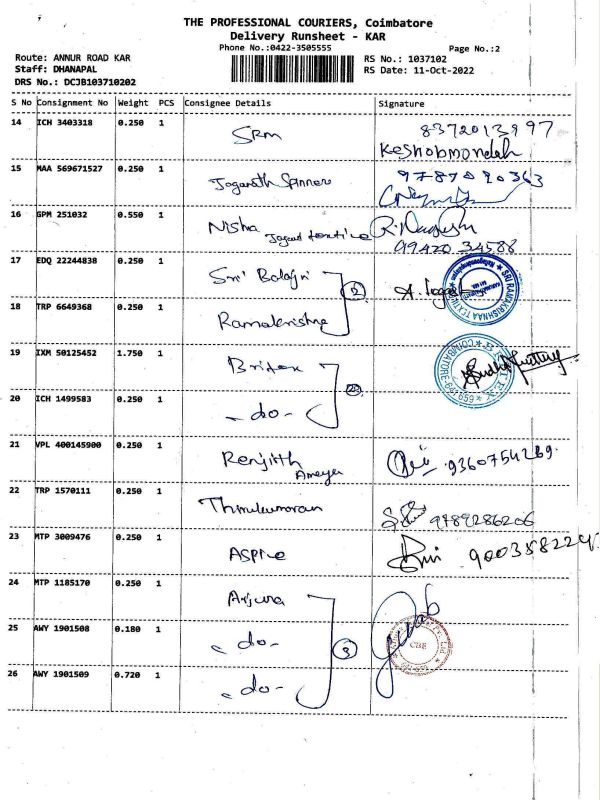 THE PROFESSIONAL COURIERS, Coimbatore
Delivery Runsheet - KAR
Phone No.:0422-3505555
Page No.:2
Route: ANNUR ROAD KAR
Staff: DHANAPAL
DRS No.: DCJB103710202
RS No.: 1037102
RS Date: 11-Oct-2022
S No Consignment No Weight PCS Consignee Details Signature
14 ICH 3403318 0.250 1 SRM 8372013997
Keshobmondal
15 MAA 569671527 0.250 1 Jaganath Spinners 9787090363
16 GPM 251032 0.550 1 Nisha Jagan textile R. Nagesh
99420 34588
17 EDQ 22244838 0.250 1 Sri Balaji 2 A. logesh
18 TRP 6649368 0.250 1 Ramakrishna
SRI RAMAKRISHNAA TEXTILE
19 IXM 50125452 1.750 1 Britex 2
COIMBATORE-641 659
20 ICH 1499583 0.250 1 - do -
21 VPL 400145900 0.250 1 Renjith Ameya 9360754289.
22 TRP 1570111 0.250 1 Thirukumaran 9789286206
23 MTP 3009476 0.250 1 ASPire
24 MTP 1185170 0.250 1 Arjuna
25 AWY 1901508 0.180 1 - do - 3
CBE
26 AWY 1901509 0.720 1 - do -